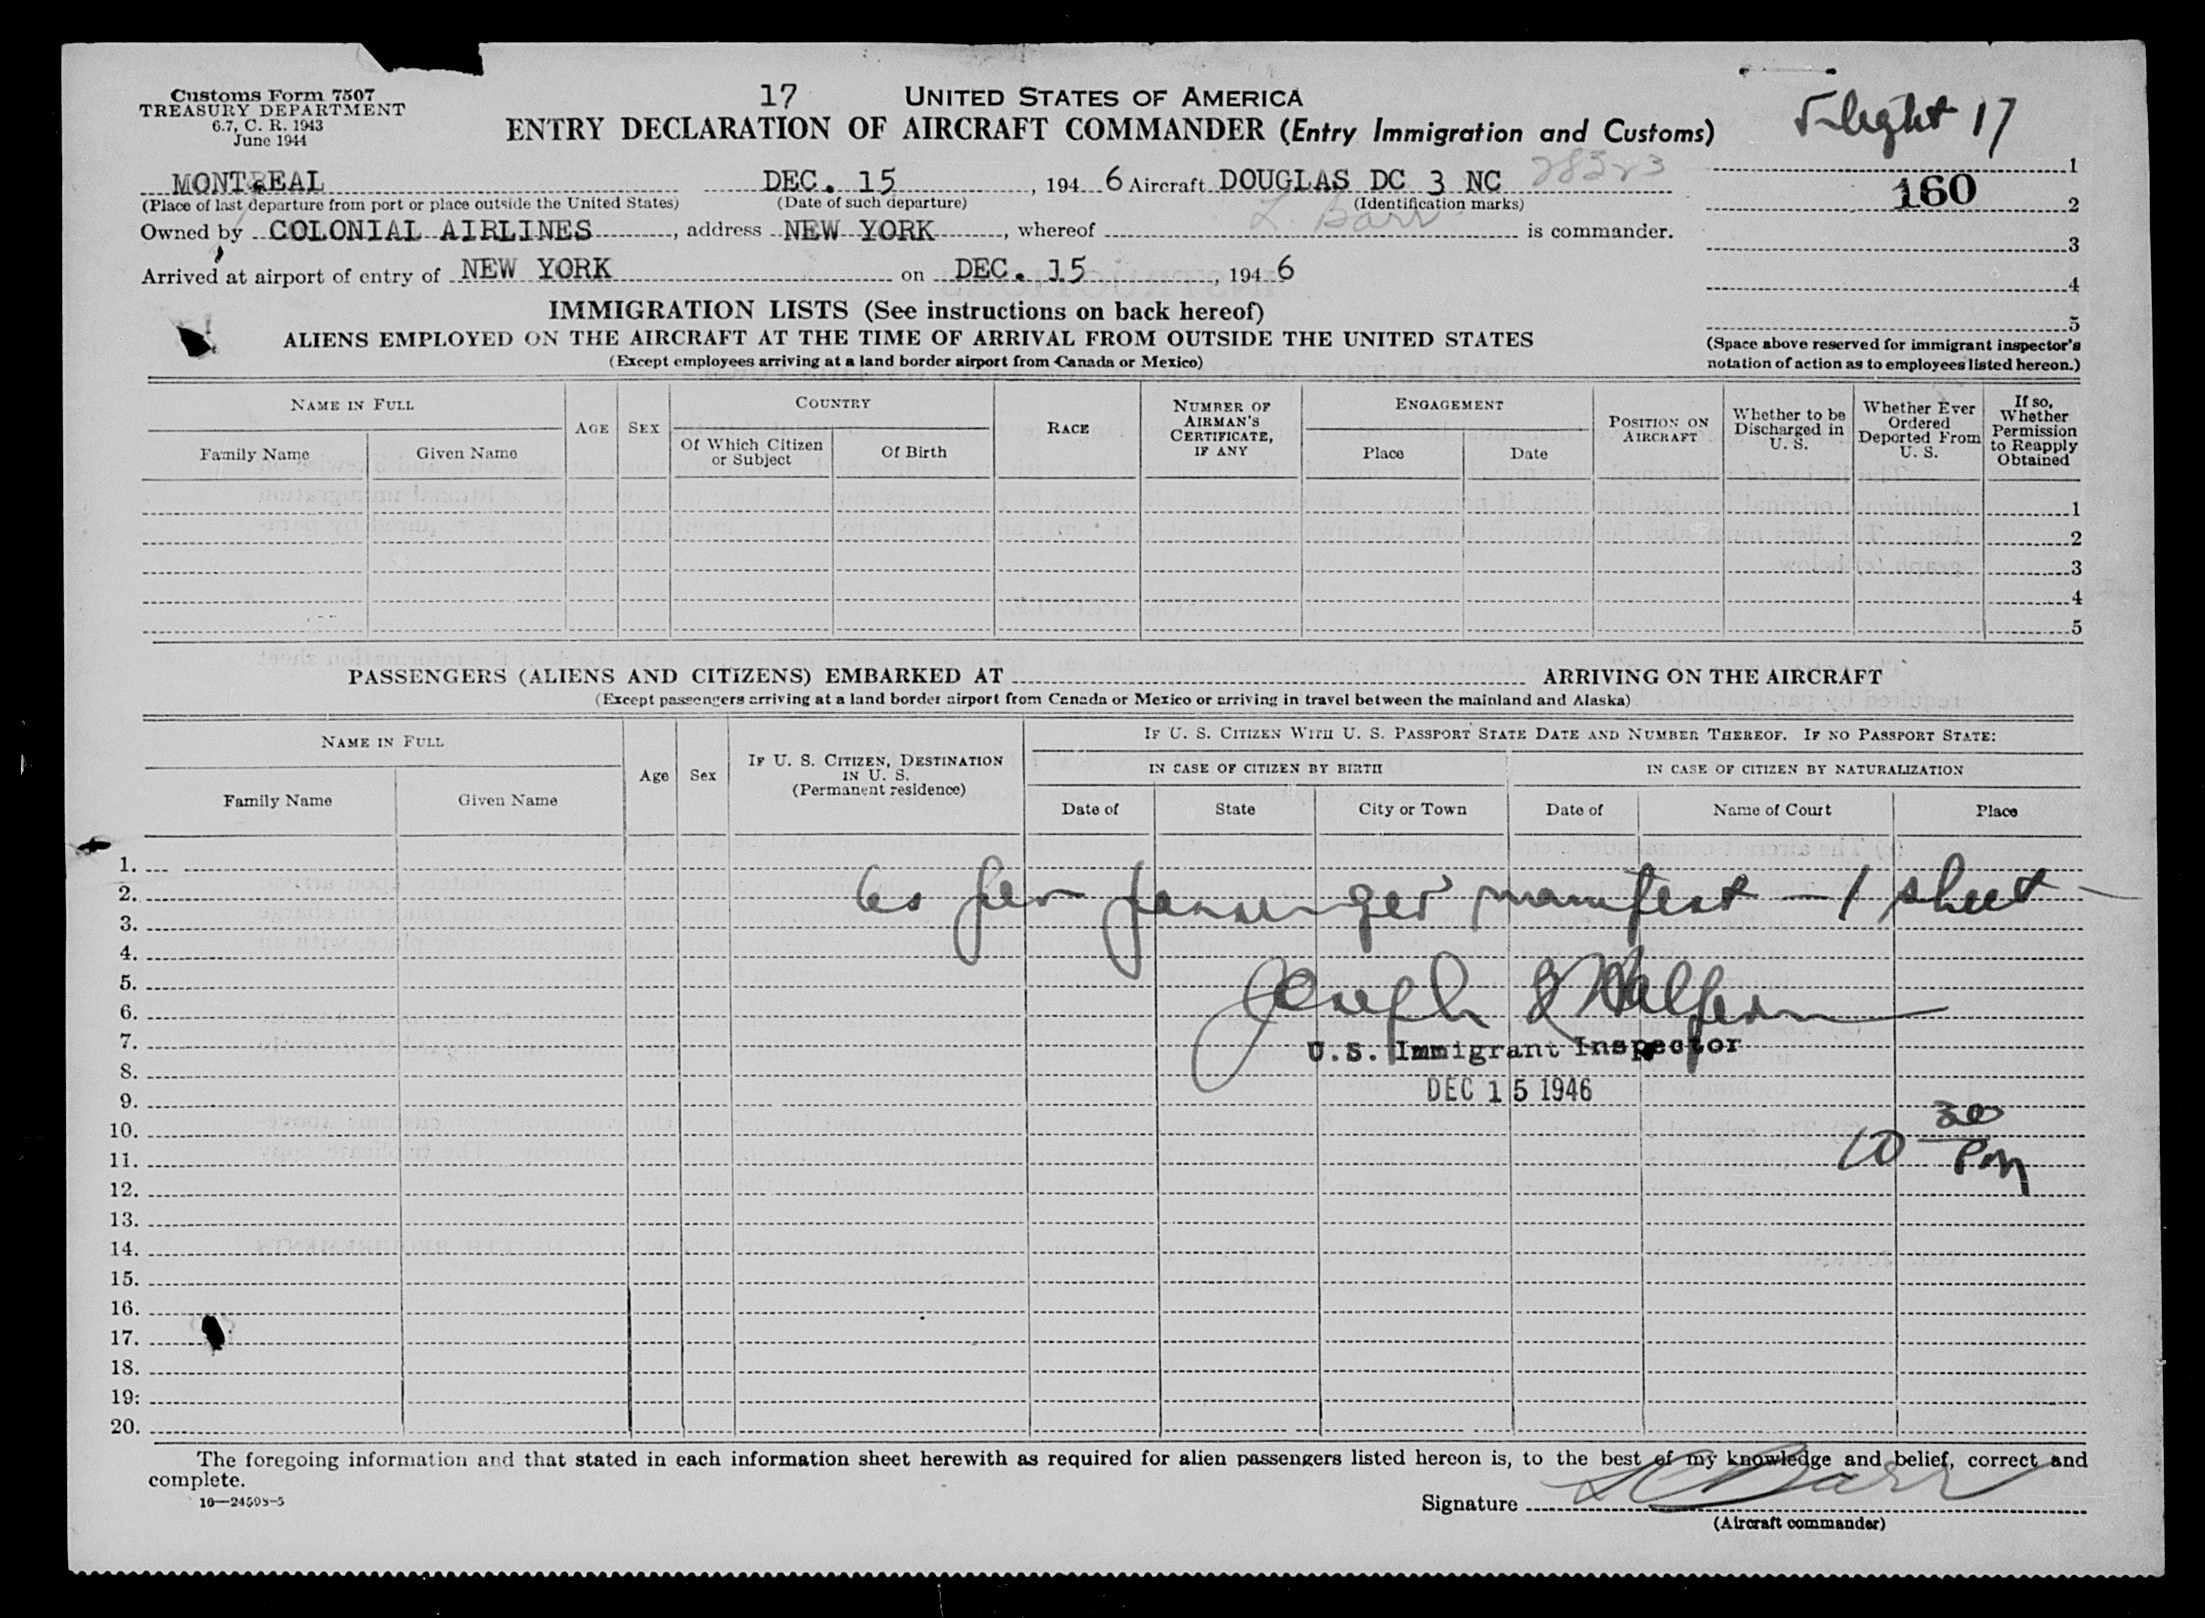 Customs Form 7507
TREASURY DEPARTMENT
6.7, C. R. 1943
June 1944
17 UNITED STATES OF AMERICA
ENTRY DECLARATION OF AIRCRAFT COMMANDER (Entry Immigration and Customs)
Flight 17
MONTREAL DEC. 15, 1946 Aircraft DOUGLAS DC 3 NC 28323
(Place of last departure from port or place outside the United States) (Date of such departure) (Identification marks)
160
Owned by COLONIAL AIRLINES, address NEW YORK, whereof L. Barr is commander.
Arrived at airport of entry of NEW YORK on DEC. 15, 1946
1
2
3
4
5
(Space above reserved for immigrant inspector's
notation of action as to employees listed hereon.)
IMMIGRATION LISTS (See instructions on back hereof)
ALIENS EMPLOYED ON THE AIRCRAFT AT THE TIME OF ARRIVAL FROM OUTSIDE THE UNITED STATES
(Except employees arriving at a land border airport from Canada or Mexico)
NAME IN FULL
Family Name Given Name
AGE SEX
COUNTRY
Of Which Citizen or Subject
Of Birth
RACE
NUMBER OF AIRMAN'S CERTIFICATE, IF ANY
ENGAGEMENT
Place Date
POSITION ON AIRCRAFT
Whether to be Discharged in U. S.
Whether Ever Ordered Deported From U. S.
If so, Whether Permission to Reapply Obtained
1
2
3
4
5
PASSENGERS (ALIENS AND CITIZENS) EMBARKED AT ARRIVING ON THE AIRCRAFT
(Except passengers arriving at a land border airport from Canada or Mexico or arriving in travel between the mainland and Alaska)
NAME IN FULL
Family Name Given Name
Age Sex
IF U. S. CITIZEN, DESTINATION IN U. S.
(Permanent residence)
IF U. S. CITIZEN WITH U. S. PASSPORT STATE DATE AND NUMBER THEREOF. IF NO PASSPORT STATE:
IN CASE OF CITIZEN BY BIRTH IN CASE OF CITIZEN BY NATURALIZATION
Date of State City or Town Date of Name of Court Place
1.
2. As per passenger manifest - 1 sheet -
3.
4.
5.
6. Joseph Halpern
7. U.S. Immigrant Inspector
8.
9. DEC 15 1946
10.
11. 10 30 PM
12.
13.
14.
15.
16.
17.
18.
19.
20.
The foregoing information and that stated in each information sheet herewith as required for alien passengers listed hereon is, to the best of my knowledge and belief, correct and
complete.
16—24598-5
Signature L Barr
(Aircraft commander)